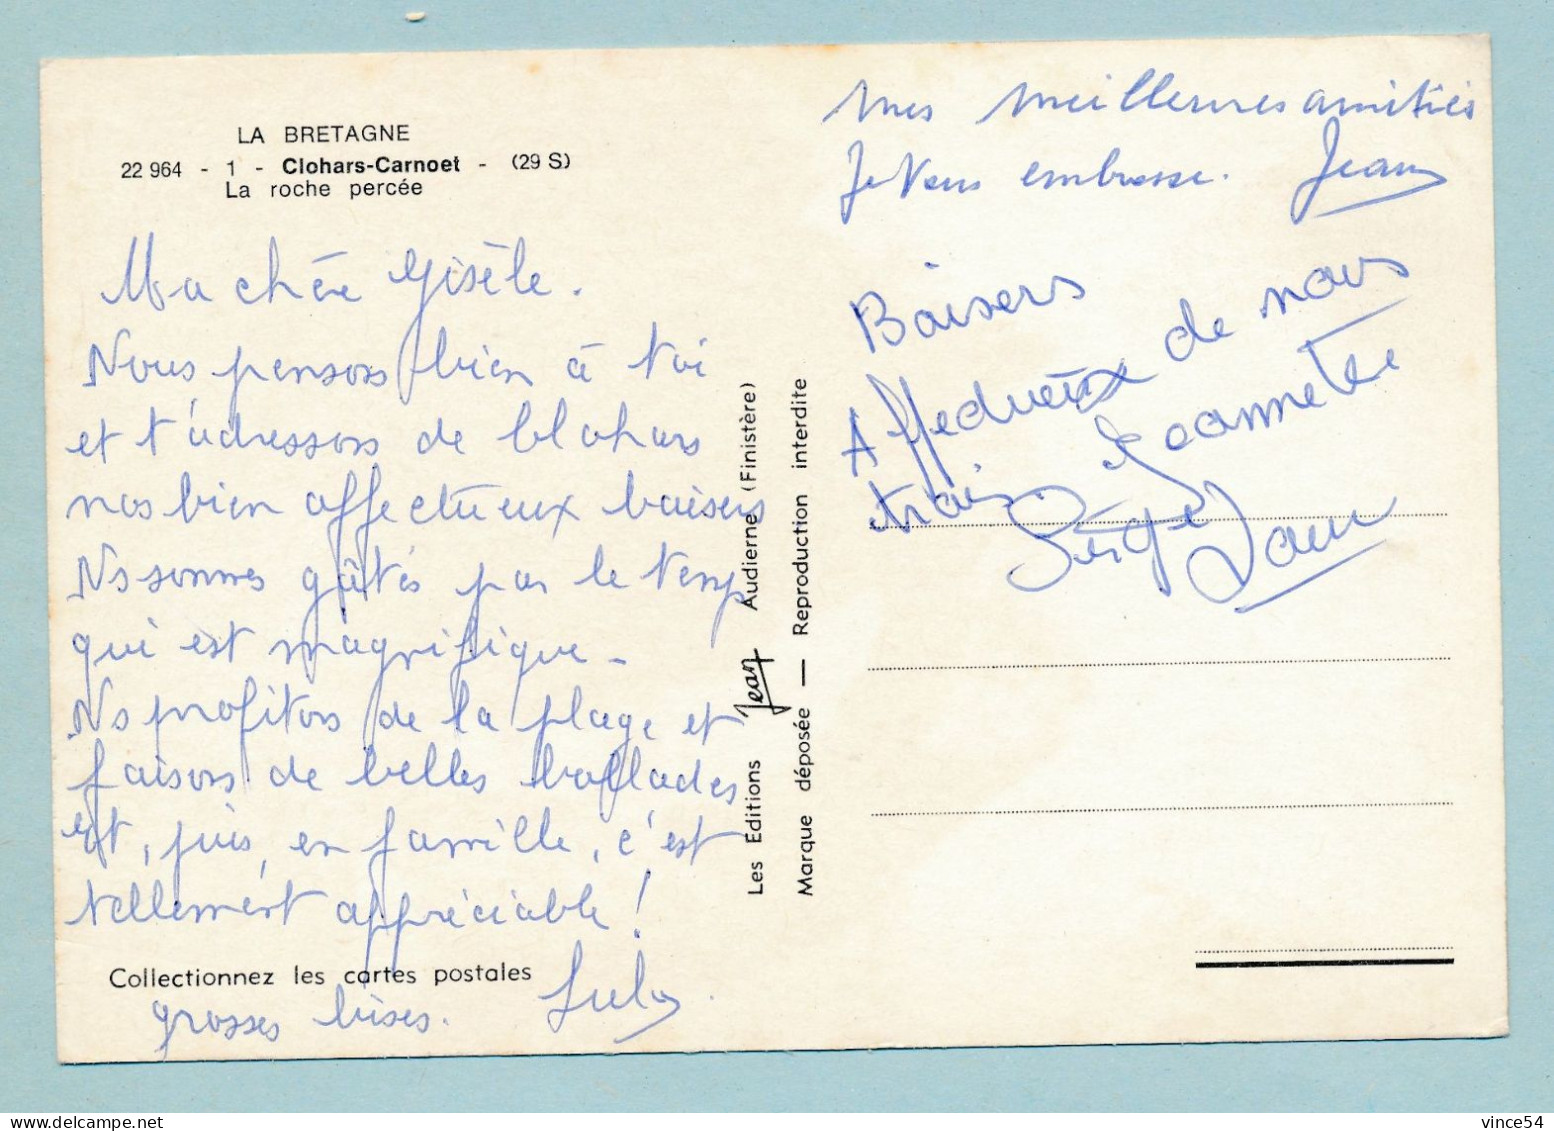 LA BRETAGNE
22 964 - 1 - Clohars-Carnoet - (29 S)
La roche percée
Ma chère Gisèle.
Nous pensons bien à toi
et t'adressons de Clohars
nos bien affectueux baisers
Ns sommes gâtés par le temps
qui est magnifique -
Ns profitons de la plage et
faisons de belles ballades
et, puis, en famille, c'est
tellement appréciable !
Collectionnez les cartes postales
grosses bises.
Les Editions Jean Audierne (Finistère)
Marque déposée — Reproduction interdite
Mes meilleures amitiés
Je vous embrasse. Jean
Baisers
Affectueux de nous
trois Jeannette
Serge
vince54